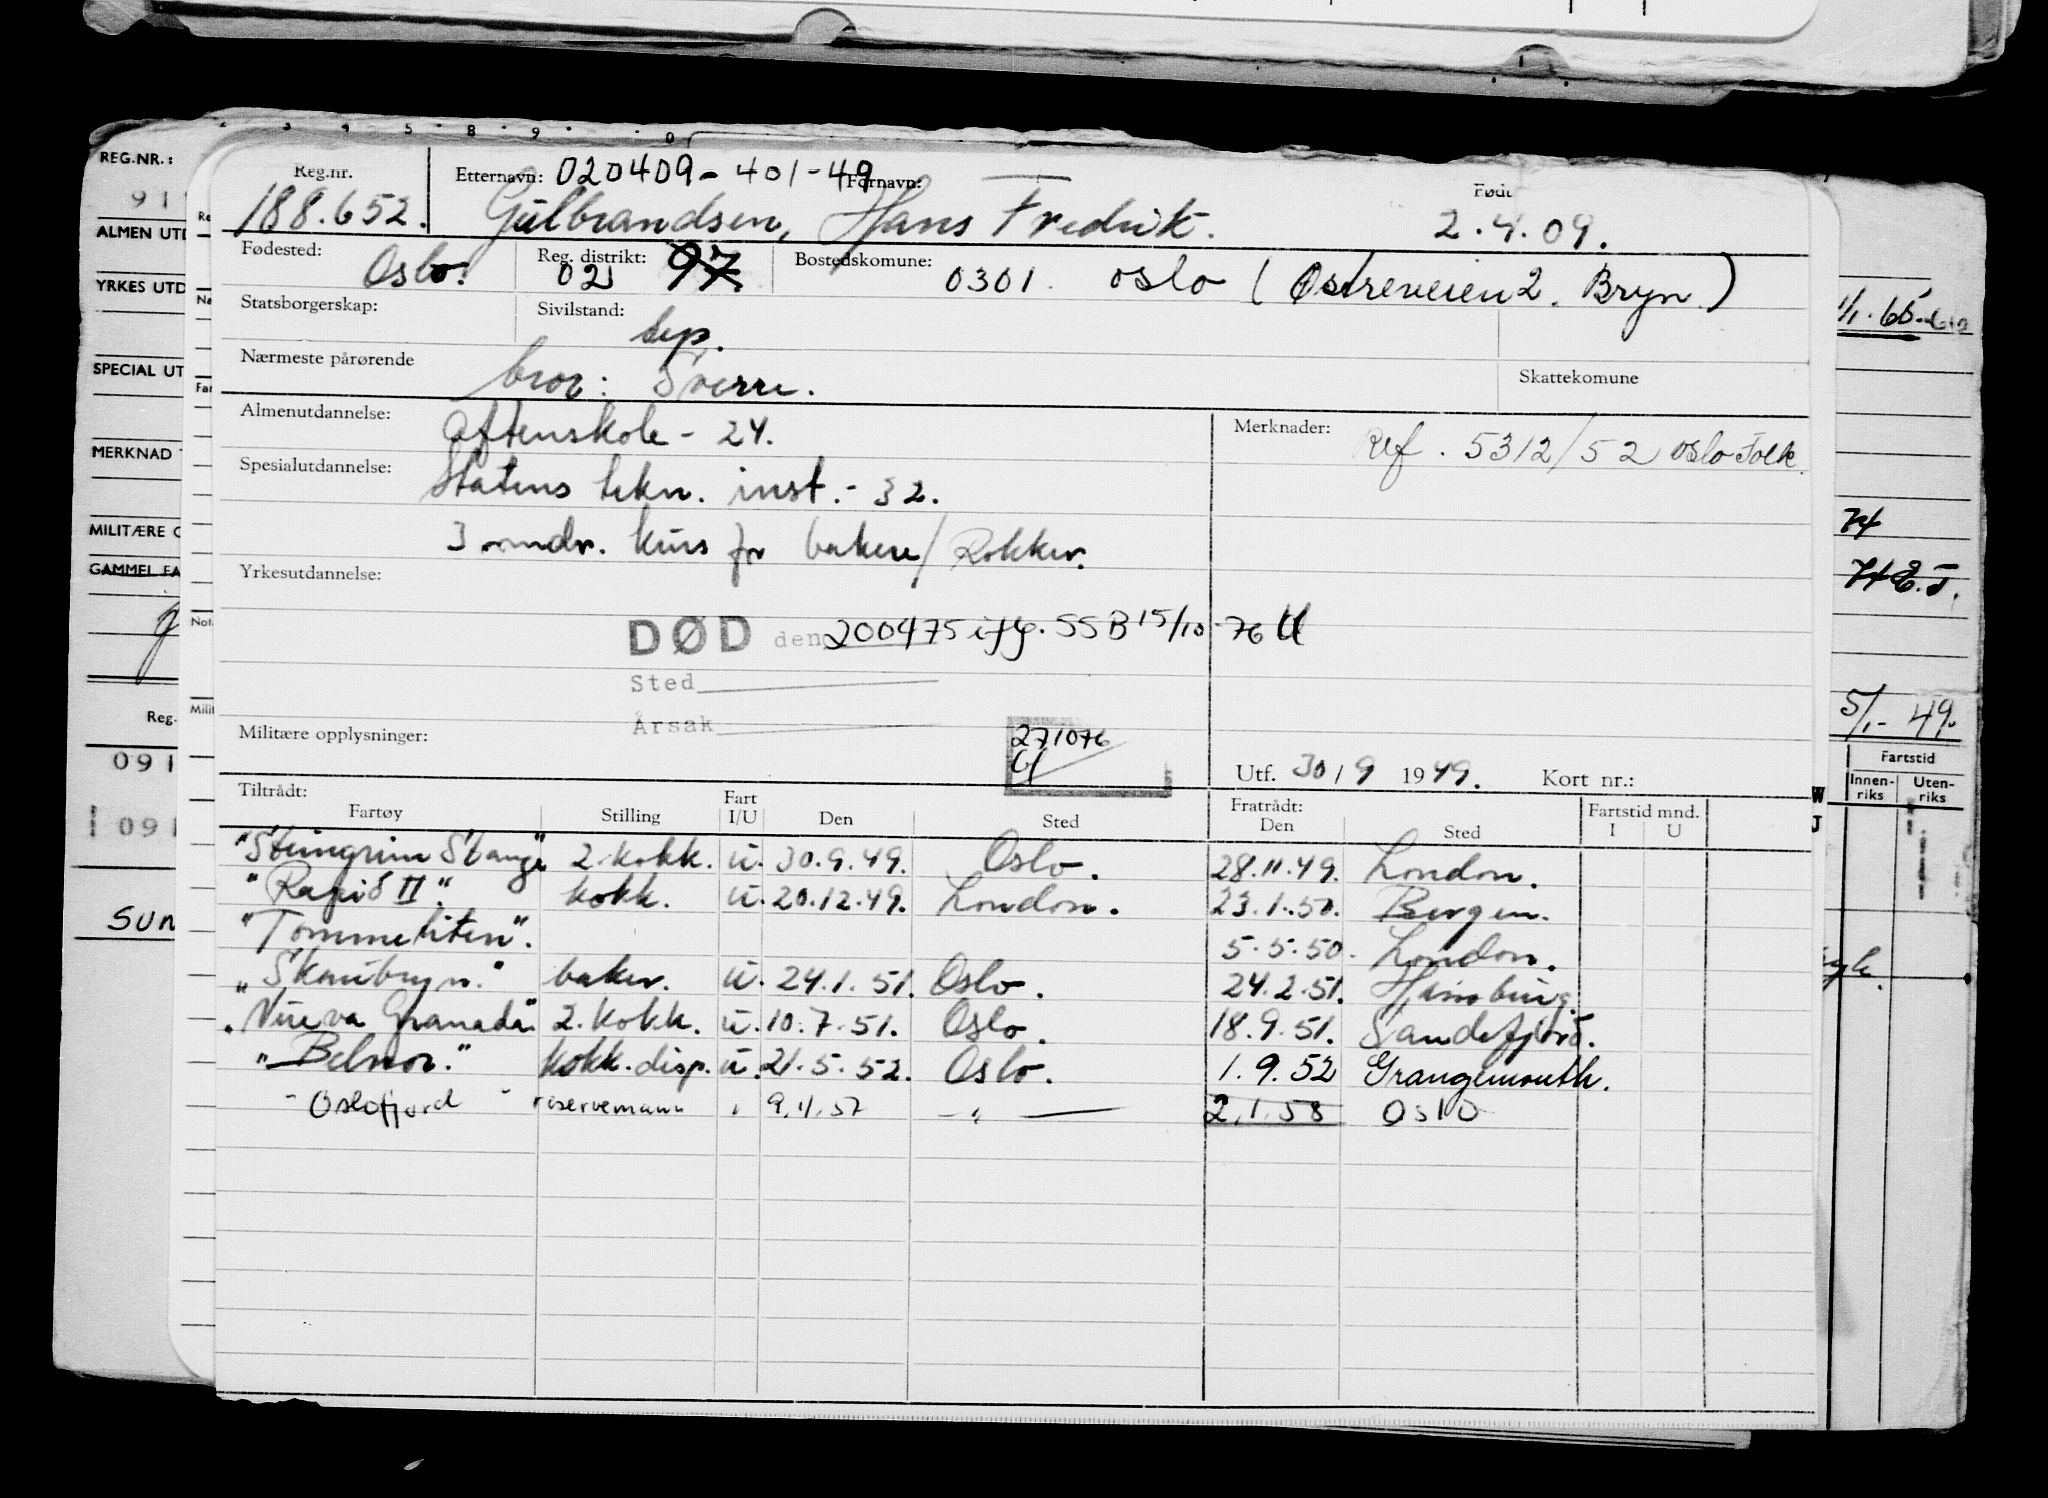 3 4 5 8 9 0
REG.NR.:
91
ALMEN UTD
YRKES UTD
SPECIAL UT
MERKNAD
MILITÆRE O
GAMMEL FA
Reg.
091
091
SUN
Reg.nr. Etternavn: 020409-401-49 Fornavn: Født
188.652. Gulbrandsen, Hans Fredrik. 2.4.09.
Fødested: Oslo. Reg. distrikt: 02 97 Bostedskomune: 0301. Oslo (Østreveien 2. Bryn)
Statsborgerskap: Sivilstand: sep.
Nærmeste pårørende bror: Sverre. Skattekomune
Almenutdannelse: Aftenskole - 24. Merknader: Ref. 5312/52 Oslo Folk.
Spesialutdannelse: Statens tekn. inst. - 32.
3 mndr. kurs for bakere/Kokker.
Yrkesutdannelse:
DØD den 200475 iflg. SSB 15/10-76
Sted
Årsak
Militære opplysninger: 271076
Utf. 30/9 1949. Kort nr.:
Tiltrådt: Fratrådt: Fartstid mnd.
Fartøy Stilling Fart I/U Den Sted Den Sted I U
"Steingrim Stange" 2. kokk. u. 30.9.49. Oslo. 28.11.49. London.
"Rapid II". kokk. u. 20.12.49. London. 23.1.50. Bergen.
"Tommeliten". 5.5.50. London.
"Skaubryn." baker. u. 24.1.51. Oslo. 24.2.51. Hamburg.
"Nueva Granada" 2. kokk. u. 10.7.51. Oslo. 18.9.51. Sandefjord.
"Belnor." kokk. disp. u. 21.5.52. Oslo. 1.9.52 Grangemouth.
- Oslofjord - reservemann " 9.11.57 - " - 2.1.58 Oslo
1/1.65.
74
H.E.T.
5/1-49.
Fartstid
Innen-riks Uten-riks
W
J